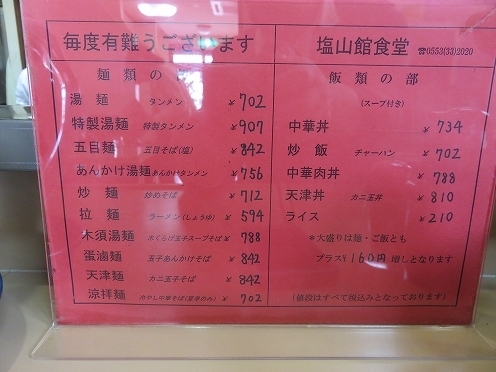 毎度有難うございます
麺類の部
湯麺 タンメン ¥702
特製湯麺 特製タンメン ¥907
五目麺 五目そば(塩) ¥842
あんかけ湯麺 あんかけタンメン ¥756
炒麺 炒めそば ¥712
拉麺 ラーメン(しょうゆ) ¥594
木須湯麺 木くらげ玉子スープそば ¥788
蛋滷麺 玉子あんかけそば ¥842
天津麺 カニ玉子そば ¥842
涼拌麺 冷やし中華そば(夏季のみ) ¥702
塩山館食堂 ☎0553(33)2020
飯類の部
(スープ付き)
中華丼 ¥734
炒飯 チャーハン ¥702
中華肉丼 ¥788
天津丼 カニ玉丼 ¥810
ライス ¥210
*大盛りは麺・ご飯とも
プラス¥160円増しとなります
(値段はすべて税込みとなっております)